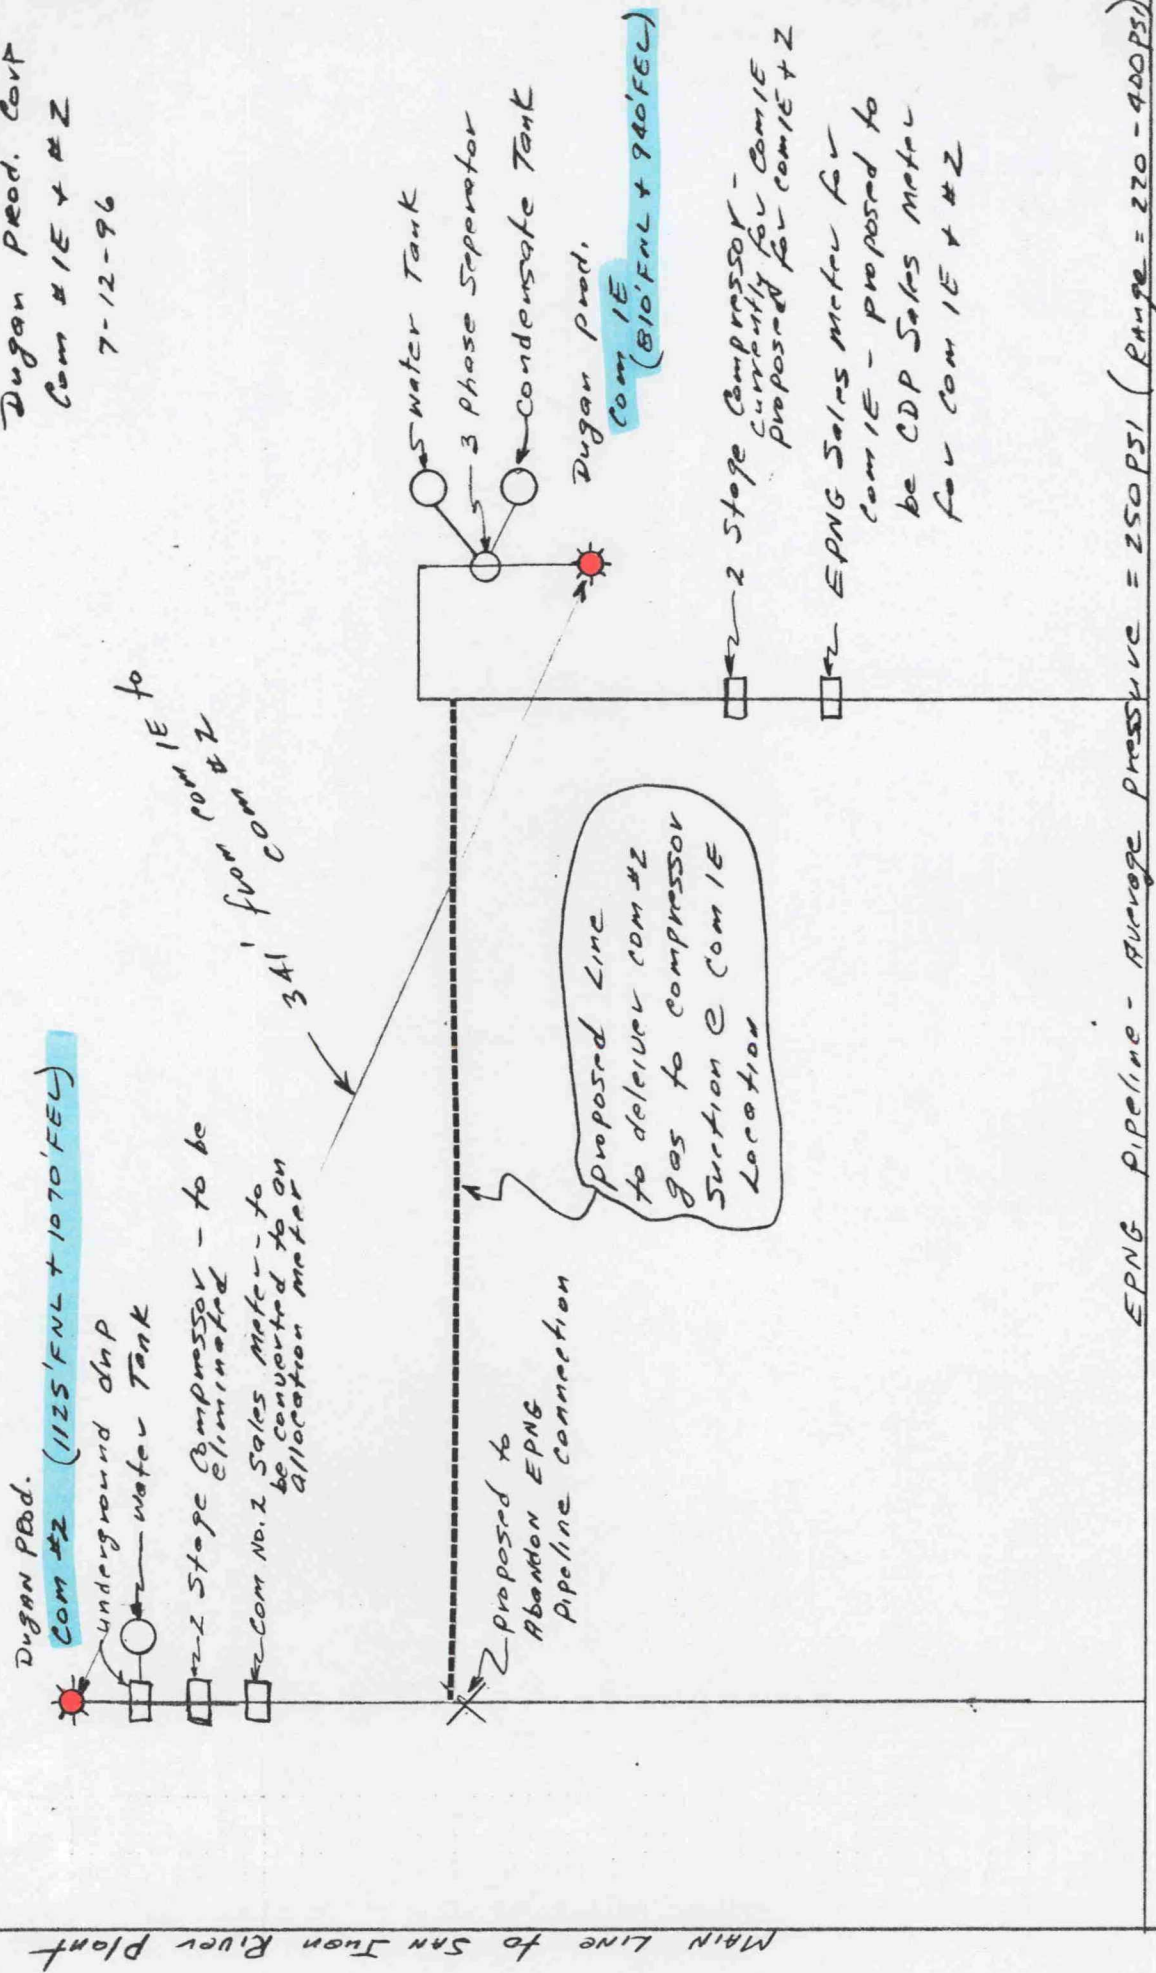 Dugan Prod. Corp
Com # 1E + # 2
7-12-96
Dugan Prod.
Com #2 (1125'FNL + 1070'FEL)
underground dnp
water Tank
2 Stage Compressor - to be
eliminated
Com No. 2 Sales Meter - to
be converted to an
allocation meter
341' from Com 1E to
Com #2
water Tank
3 phase Seperator
Condensate Tank
Dugan prod.
Com 1E
(810'FNL + 940'FEL)
2 Stage Compressor -
currently for Com 1E
proposed for Com 1E + 2
EPNG Sales meter for
Com 1E - proposed to
be CDP Sales Meter
for Com 1E + #2
proposed to
Abandon EPNG
Pipeline Connection
proposed Line
to deleiver Com #2
gas to compressor
Suction @ Com 1E
Location
EPNG Pipeline - Average Pressure = 250 PSI (Range = 220 - 400 PSI)
MAIN LINE to SAN Juan River Plant